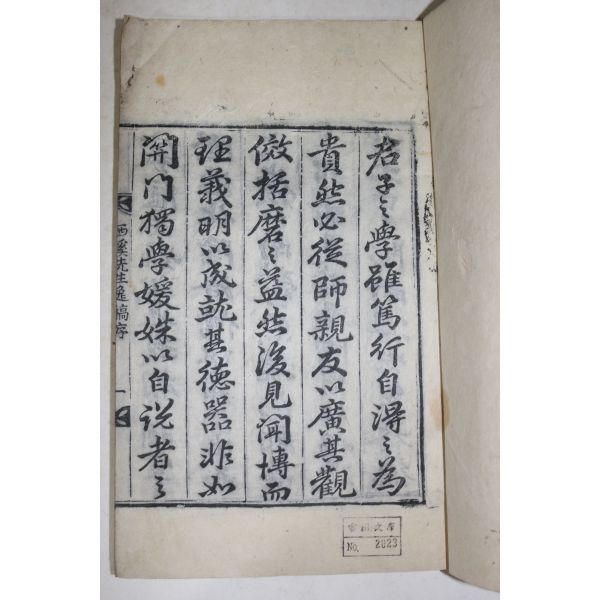 君子之學雖篤行自得之爲
貴然必從師親友以廣其觀
倣括磨之益然後見聞博而
理義明以成就其德器非如
閉門獨學媛姝以自說者之
西溪先生逸稿序
一
文庫
No. 2823